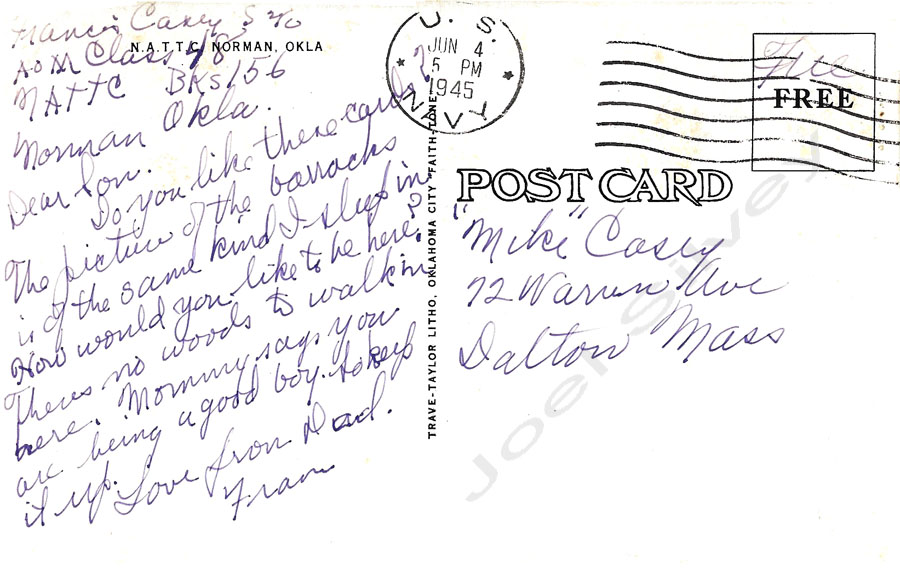 Francis Casey S 2/c
N.A.T.T.C. NORMAN, OKLA
AOM Class 48
NATTC BKs 156
Norman Okla.
Dear Son.
Do you like these cards?
The picture of the barracks
is of the same kind I sleep in.
How would you like to be here?
Theres no woods to walk in
here. Mommy says you
are being a good boy. So keep
it up. Love from Dad.
Fran
TRAVE-TAYLOR LITHO, OKLAHOMA CITY "FAITH-TONE"
U. S.
JUN 4
5 PM
1945
NAVY
Free
FREE
POST CARD
"Mike" Casey
72 Warren Ave
Dalton Mass
Joel Silvey